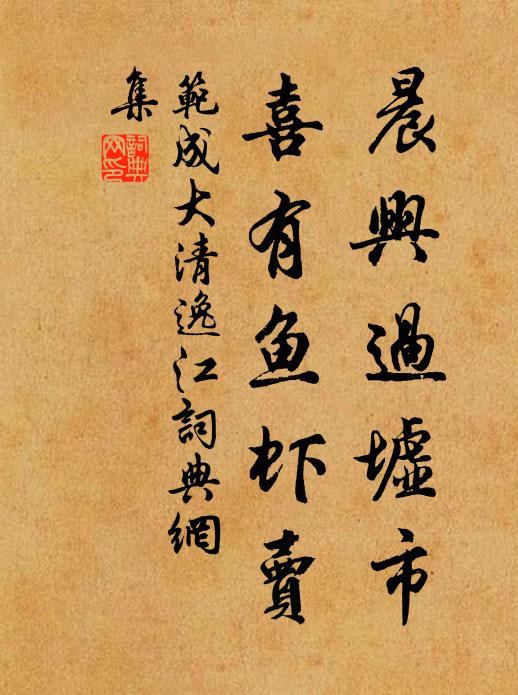 晨興過墟市
喜有鱼虾賣
範成大清逸江詞典網
集
詞典网印